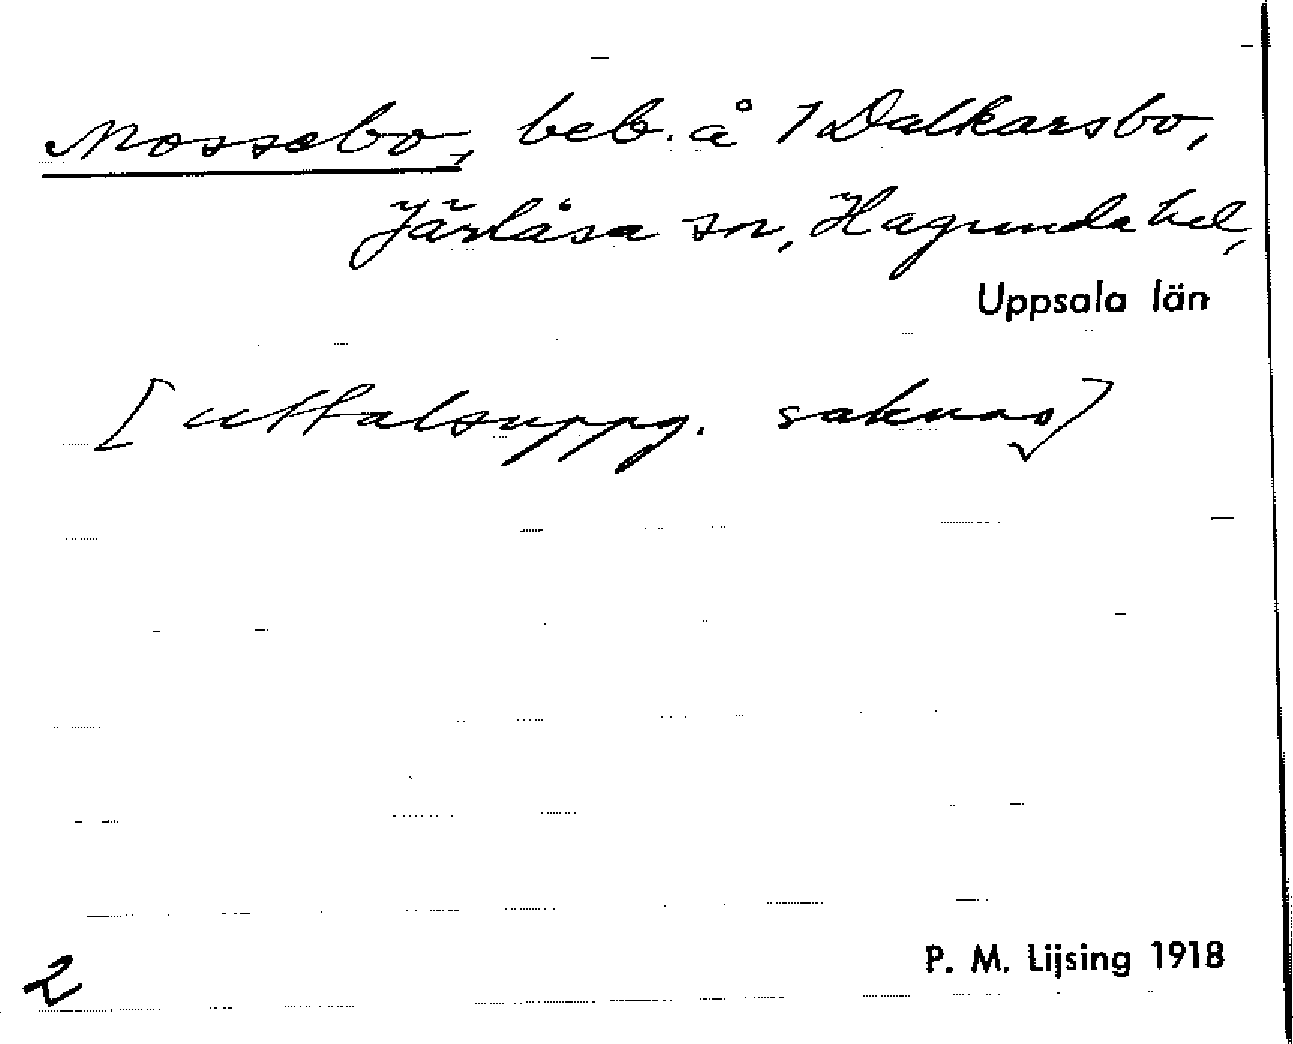 Mossebo, beb. å 1 Dalkarsbo,
Järlåsa sn, Hagunda hd,
Uppsala län
[uttalsuppg. saknas]
P. M. Lijsing 1918
2